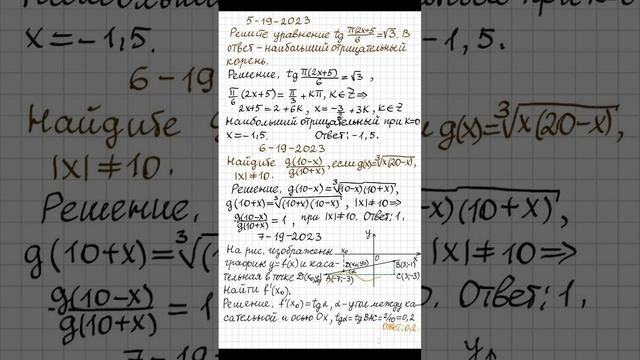 5-19-2023
Решите уравнение tg π(2x+5)/6 = √3. В
ответ - наибольший отрицательный
корень.
Решение. tg π(2x+5)/6 = √3 ,
π/6 (2x+5) = π/3 + kπ, k∈Z ⇒
2x+5 = 2+6k, x = -3/2 + 3k, k∈Z
Наибольший отрицательный при k=0
x = -1,5. Ответ: -1,5.
6-19-2023
Найдите g(10-x)/g(10+x), если g(x)=∛x(20-x),
|x|≠10.
Решение, g(10-x)=∛(10-x)(10+x),
g(10+x)=∛(10+x)(10-x) , |x|≠10⇒
g(10-x)/g(10+x) = 1 , при |x|≠10. Ответ: 1.
7-19-2023
На рис. изображены
график y=f(x) и каса-
тельная в точке
Найти f'(x₀).
Решение, f'(x₀)=tgα, α-угол между ка
сательной и осью Ox, tgα=tgBAC=2/10=0,2
Ответ: 0,2.
y
x₀
x
B(3;-1)
C(3;-3)
A(-7;-3)
x = -1,5.
6-19-
Найдите
|x|≠10.
Решение,
g(10+x)=∛(
g(10-x)/g(10+x)
7-1
-1,5.
g(x)=∛x(20-x),
-x)(10+x),
|x|≠10⇒
. Ответ: 1.